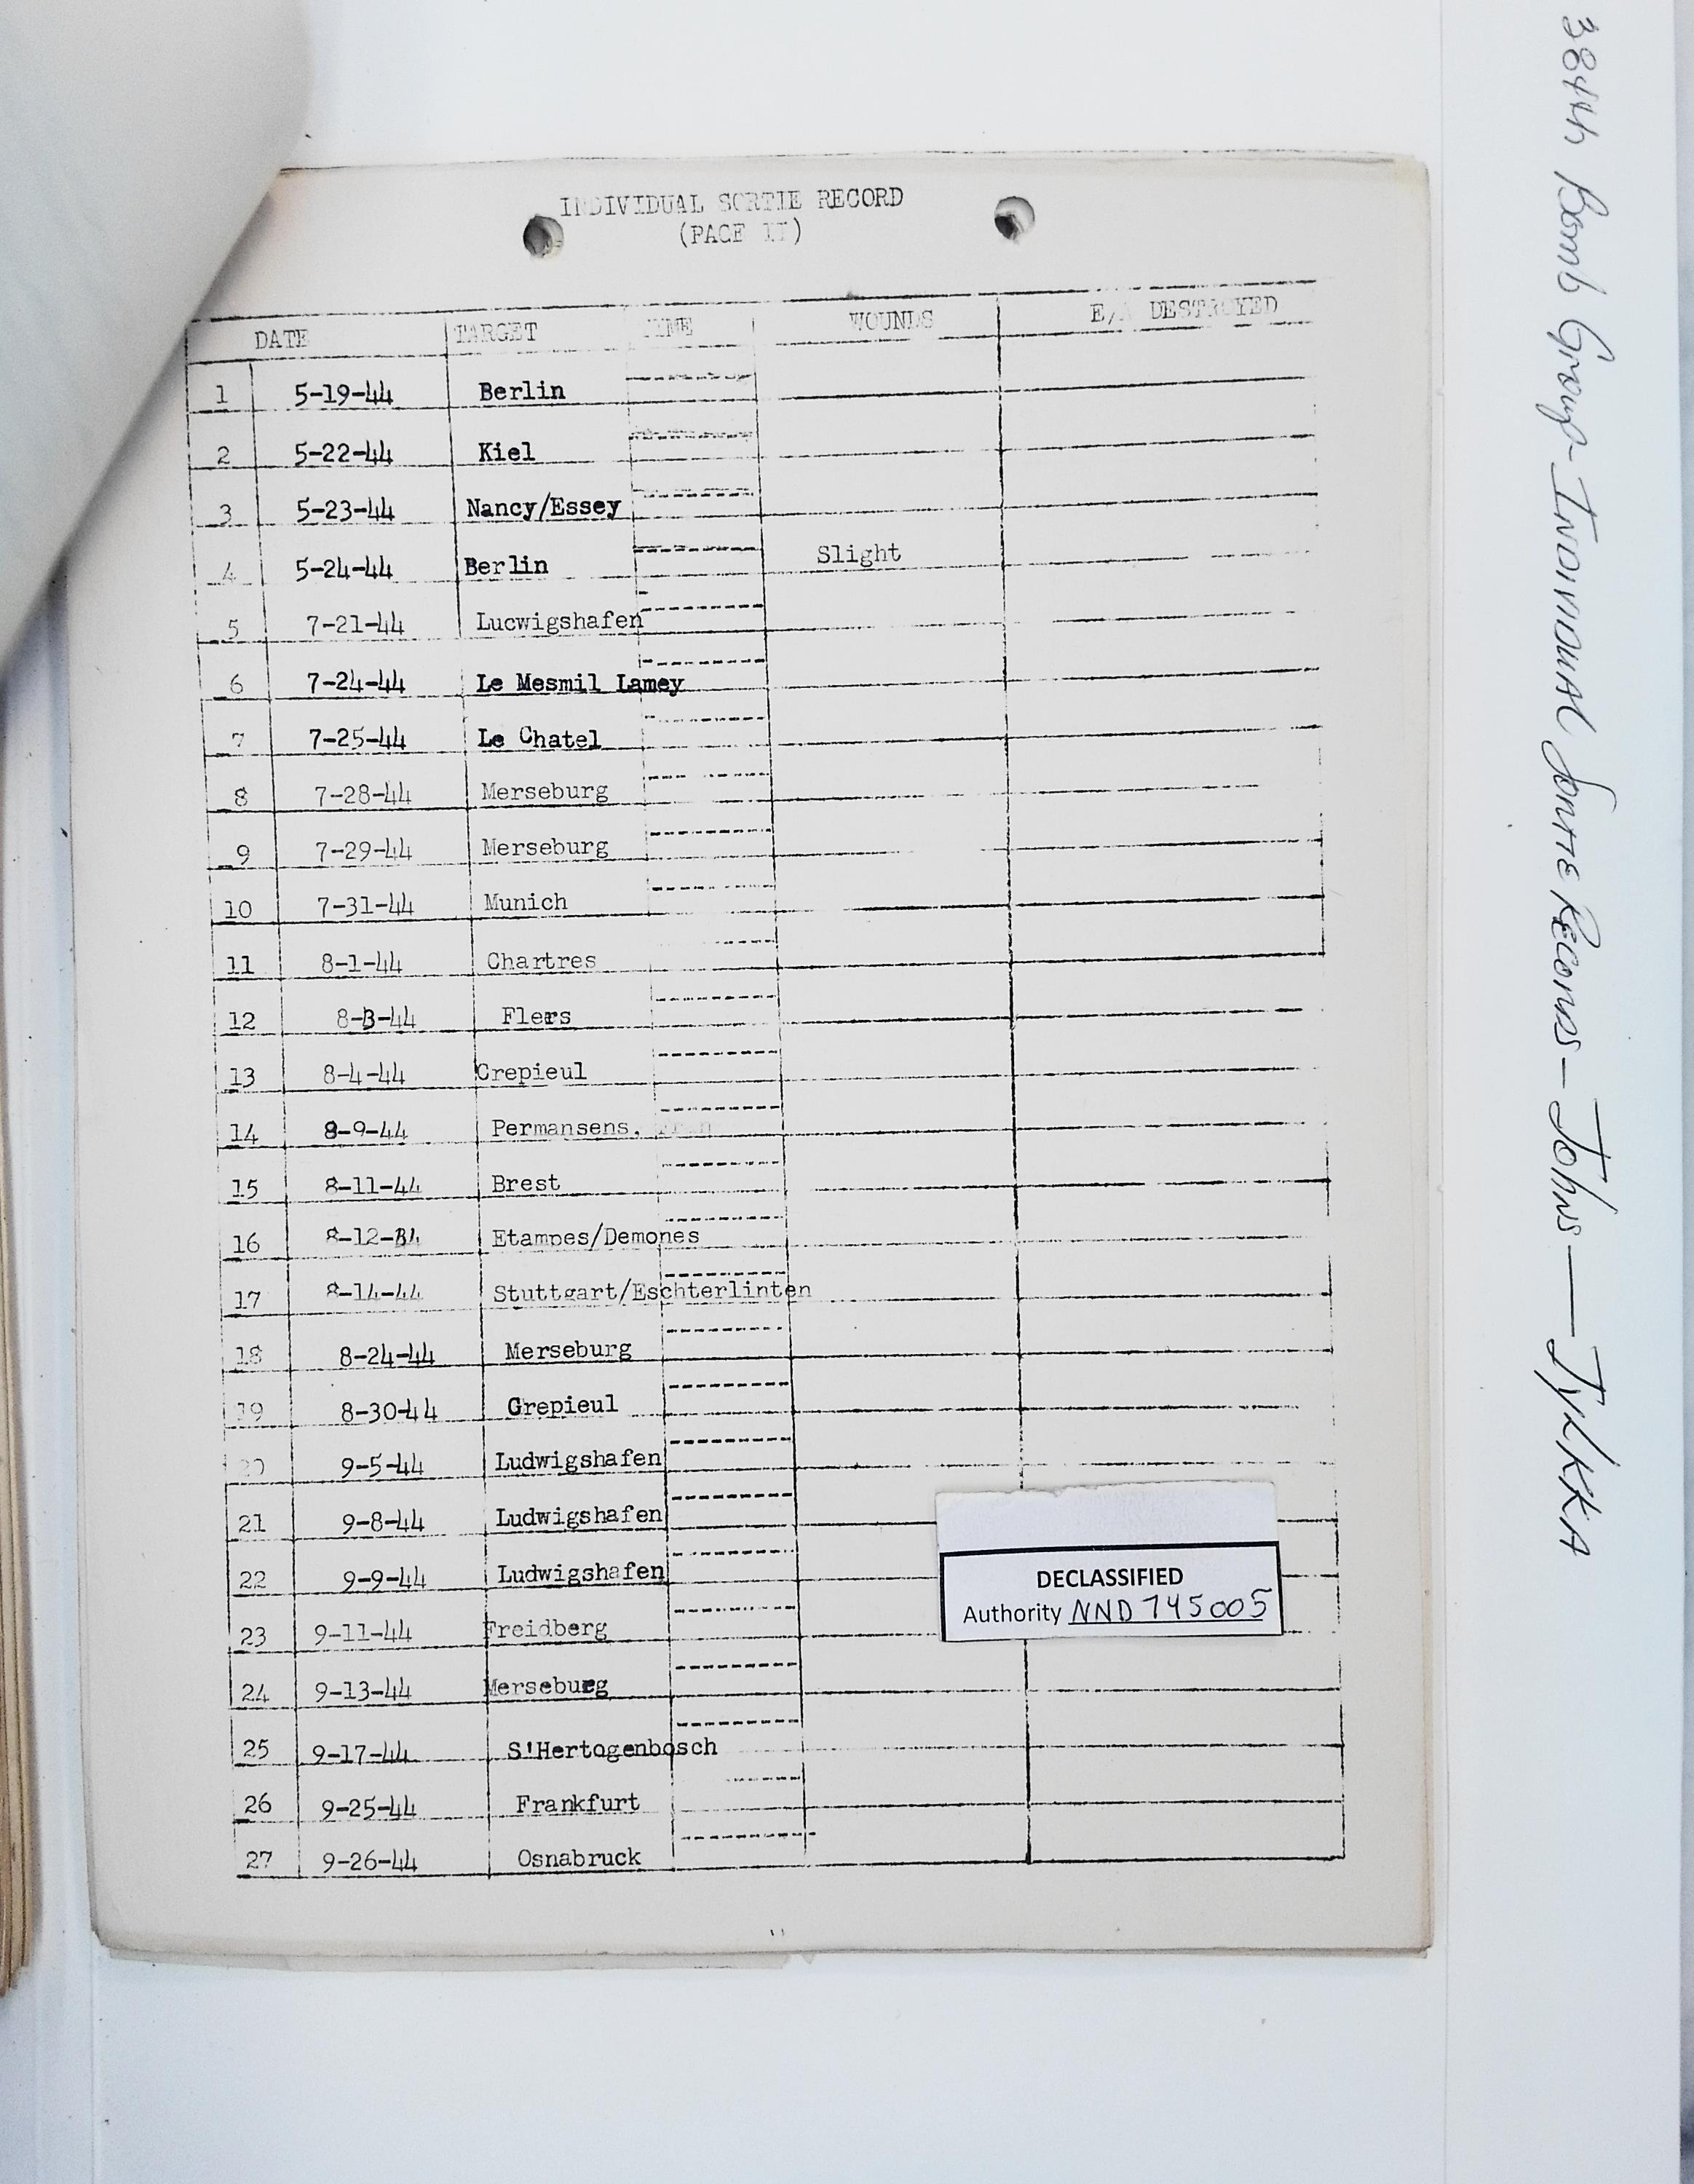 INDIVIDUAL SORTIE RECORD
(PAGE II)
DATE TARGET WOUNDS E/A DESTROYED
1 5-19-44 Berlin
2 5-22-44 Kiel
3 5-23-44 Nancy/Essey
4 5-24-44 Berlin Slight
5 7-21-44 Lucwigshafen
6 7-24-44 Le Mesmil Lamey
7 7-25-44 Le Chatel
8 7-28-44 Merseburg
9 7-29-44 Merseburg
10 7-31-44 Munich
11 8-1-44 Chartres
12 8-3-44 Flers
13 8-4-44 Crepieul
14 8-9-44 Permansens.
15 8-11-44 Brest
16 8-12-44 Etampes/Demones
17 8-14-44 Stuttgart/Eschterlinten
18 8-24-44 Merseburg
19 8-30-44 Grepieul
20 9-5-44 Ludwigshafen
21 9-8-44 Ludwigshafen
22 9-9-44 Ludwigshafen
23 9-11-44 Freidberg
24 9-13-44 Merseburg
25 9-17-44 S'Hertogenbosch
26 9-25-44 Frankfurt
27 9-26-44 Osnabruck
DECLASSIFIED
Authority NND 745005
384th Bomb Group - Individual Sortie Records - Johns - Jylkka